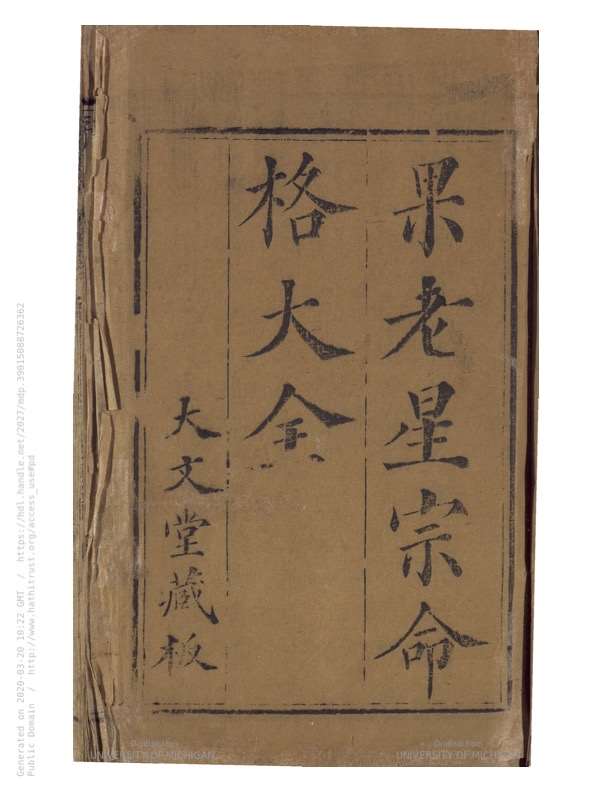 果老星宗命
格大全
大文堂藏板
Generated on 2020-03-20 10:22 GMT / https://hdl.handle.net/2027/mdp.39015088726362
Public Domain / http://www.hathitrust.org/access_use#pd
Original from
UNIVERSITY OF MICHIGAN
Original from
UNIVERSITY OF MICHIGAN